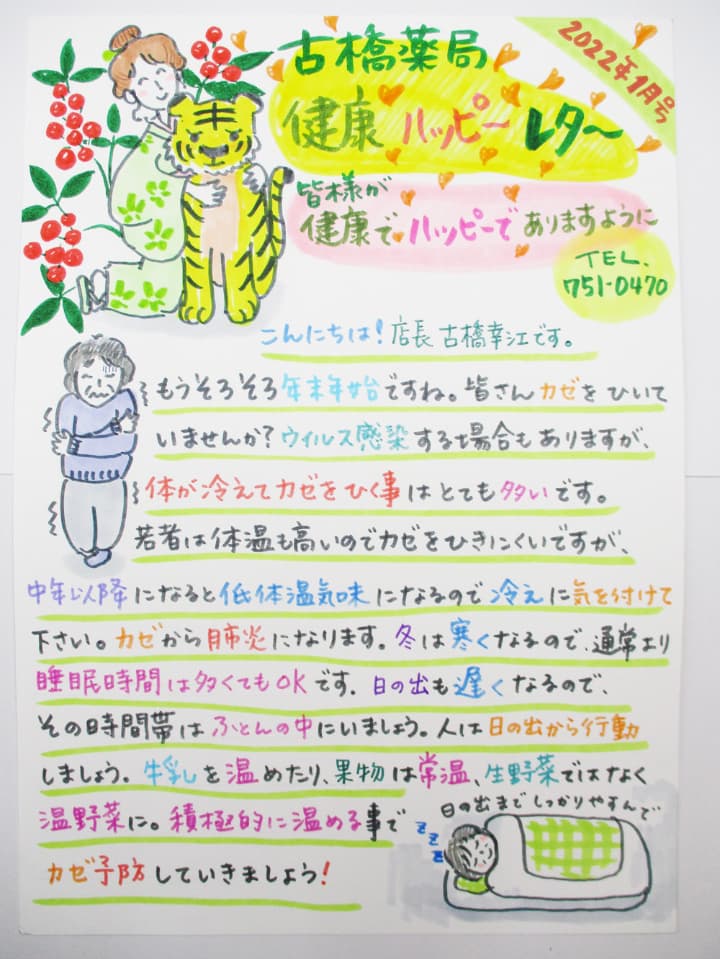 2022年1月号
古橋薬局
健康ハッピーレター
皆様が
健康でハッピーでありますように
TEL.
751-0470
こんにちは!店長古橋幸江です。
もうそろそろ年末年始ですね。皆さんカゼをひいて
いませんか?ウィルス感染する場合もありますが、
体が冷えてカゼをひく事はとても多いです。
若者は体温も高いのでカゼをひきにくいですが、
中年以降になると低体温気味になるので冷えに気を付けて
下さい。カゼから肺炎になります。冬は寒くなるので、通常より
睡眠時間は多くてもOKです。日の出も遅くなるので、
その時間帯はふとんの中にいましょう。人は日の出から行動
しましょう。牛乳を温めたり、果物は常温、生野菜ではなく
温野菜に。積極的に温める事で
カゼ予防していきましょう!
日の出までしっかりやすんで
zzz